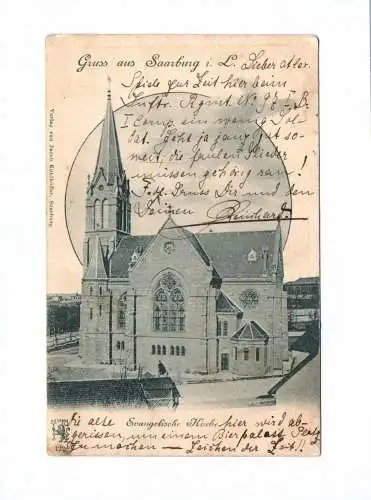 Gruss aus Saarburg i. L. Lieber Alex.
Spiele zur Zeit hier beim
Inftr. Rgmt. No. 97
I Comp. ein wenig Sol
dat. Geht ja ganz gut so-
weit, die faulen Glieder
müssen gehörig ran!
Frdl. Gruss Dir und den
Deinen
Reinhard.
Verlag von Jacob Saarburg.
Evangelische Kirche
Die alte hier wird ab-
gerissen um einem Bierpalast Platz
zu machen — Zeichen der Zeit!!